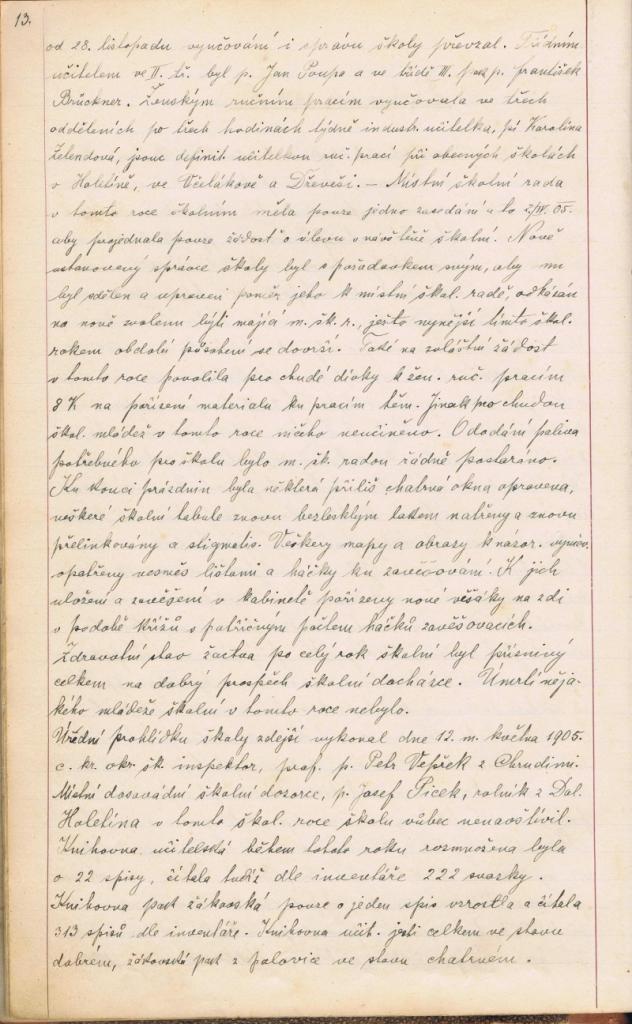 13.
od 28. listopadu vyučování i správu školy převzal. Třídním
učitelem ve II. tř. byl p. Jan Poupa a ve třídě III. p. František
Brückner. Ženským ručním pracím vyučovala ve třech
odděleních po třech hodinách týdně industr. učitelka, pí Karolina
Zelendová, jsouc definit. učitelkou ruč. prací při obecných školách
v Holetíně, ve Včelákově a Dřevěši. – Místní školní rada
v tomto roce školním měla pouze jedno zasedání a to 2/IV. 05.
aby projednala pouze žádosť o úlevu v návštěvě školní. Nově
ustanovený správce školy byl s požadavkem svým, aby mu
byl sdělen a upraven poměr jeho k místní škol. radě, odkázán
na nově zvolenu býti mající m. šk. r., ježto nynější tímto škol.
rokem období působení se dovrší. Také na zvláštní žádost
v tomto roce povolila pro chudé dívky k žen. ruč. pracím
8 K na pořízení materialu ku pracím těm. Jinak pro chudou
škol. mládež v tomto roce ničeho neučiněno. O dodání paliva
potřebného pro školu bylo m. šk. radou řádně postaráno.
Ku konci prázdnin byla některá příliš chatrná okna opravena,
veškeré školní tabule znovu bezlesklým lakem natřeny a znovu
přelinkovány a stigmatis. Veškery mapy a obrazy k názor. vyučov.
opatřeny vesměs lištami a háčky ku zavěšování. K jich
uložení a zavěšení v kabinetě pořízeny nové věšáky na zdi
v podobě křížů s patřičným počtem háčků zavěšovacích.
Zdravotní stav žactva po celý rok školní byl příznivý
celkem na dobrý prospěch školní docházce. Úmrtí něja-
kého mládeže školní v tomto roce nebylo.
Úřední prohlídku školy zdejší vykonal dne 12. m. května 1905.
c. kr. okr. šk. inspektor, prof. p. Petr Vepřek z Chrudimi.
Místní dosavádní školní dozorce, p. Josef Picek, rolník z Dol.
Holetína v tomto škol. roce školu vůbec nenavštívil.
Knihovna učitelská během tohoto roku rozmnožena byla
o 22 spisy, čítala tudíž dle inventáře 222 svazky.
Knihovna pak žákovská pouze o jeden spis vzrostla a čítala
313 spisů dle inventáře. Knihovna učit. jesti celkem ve stavu
dobrém, žákovská pak z polovice ve stavu chatrném.